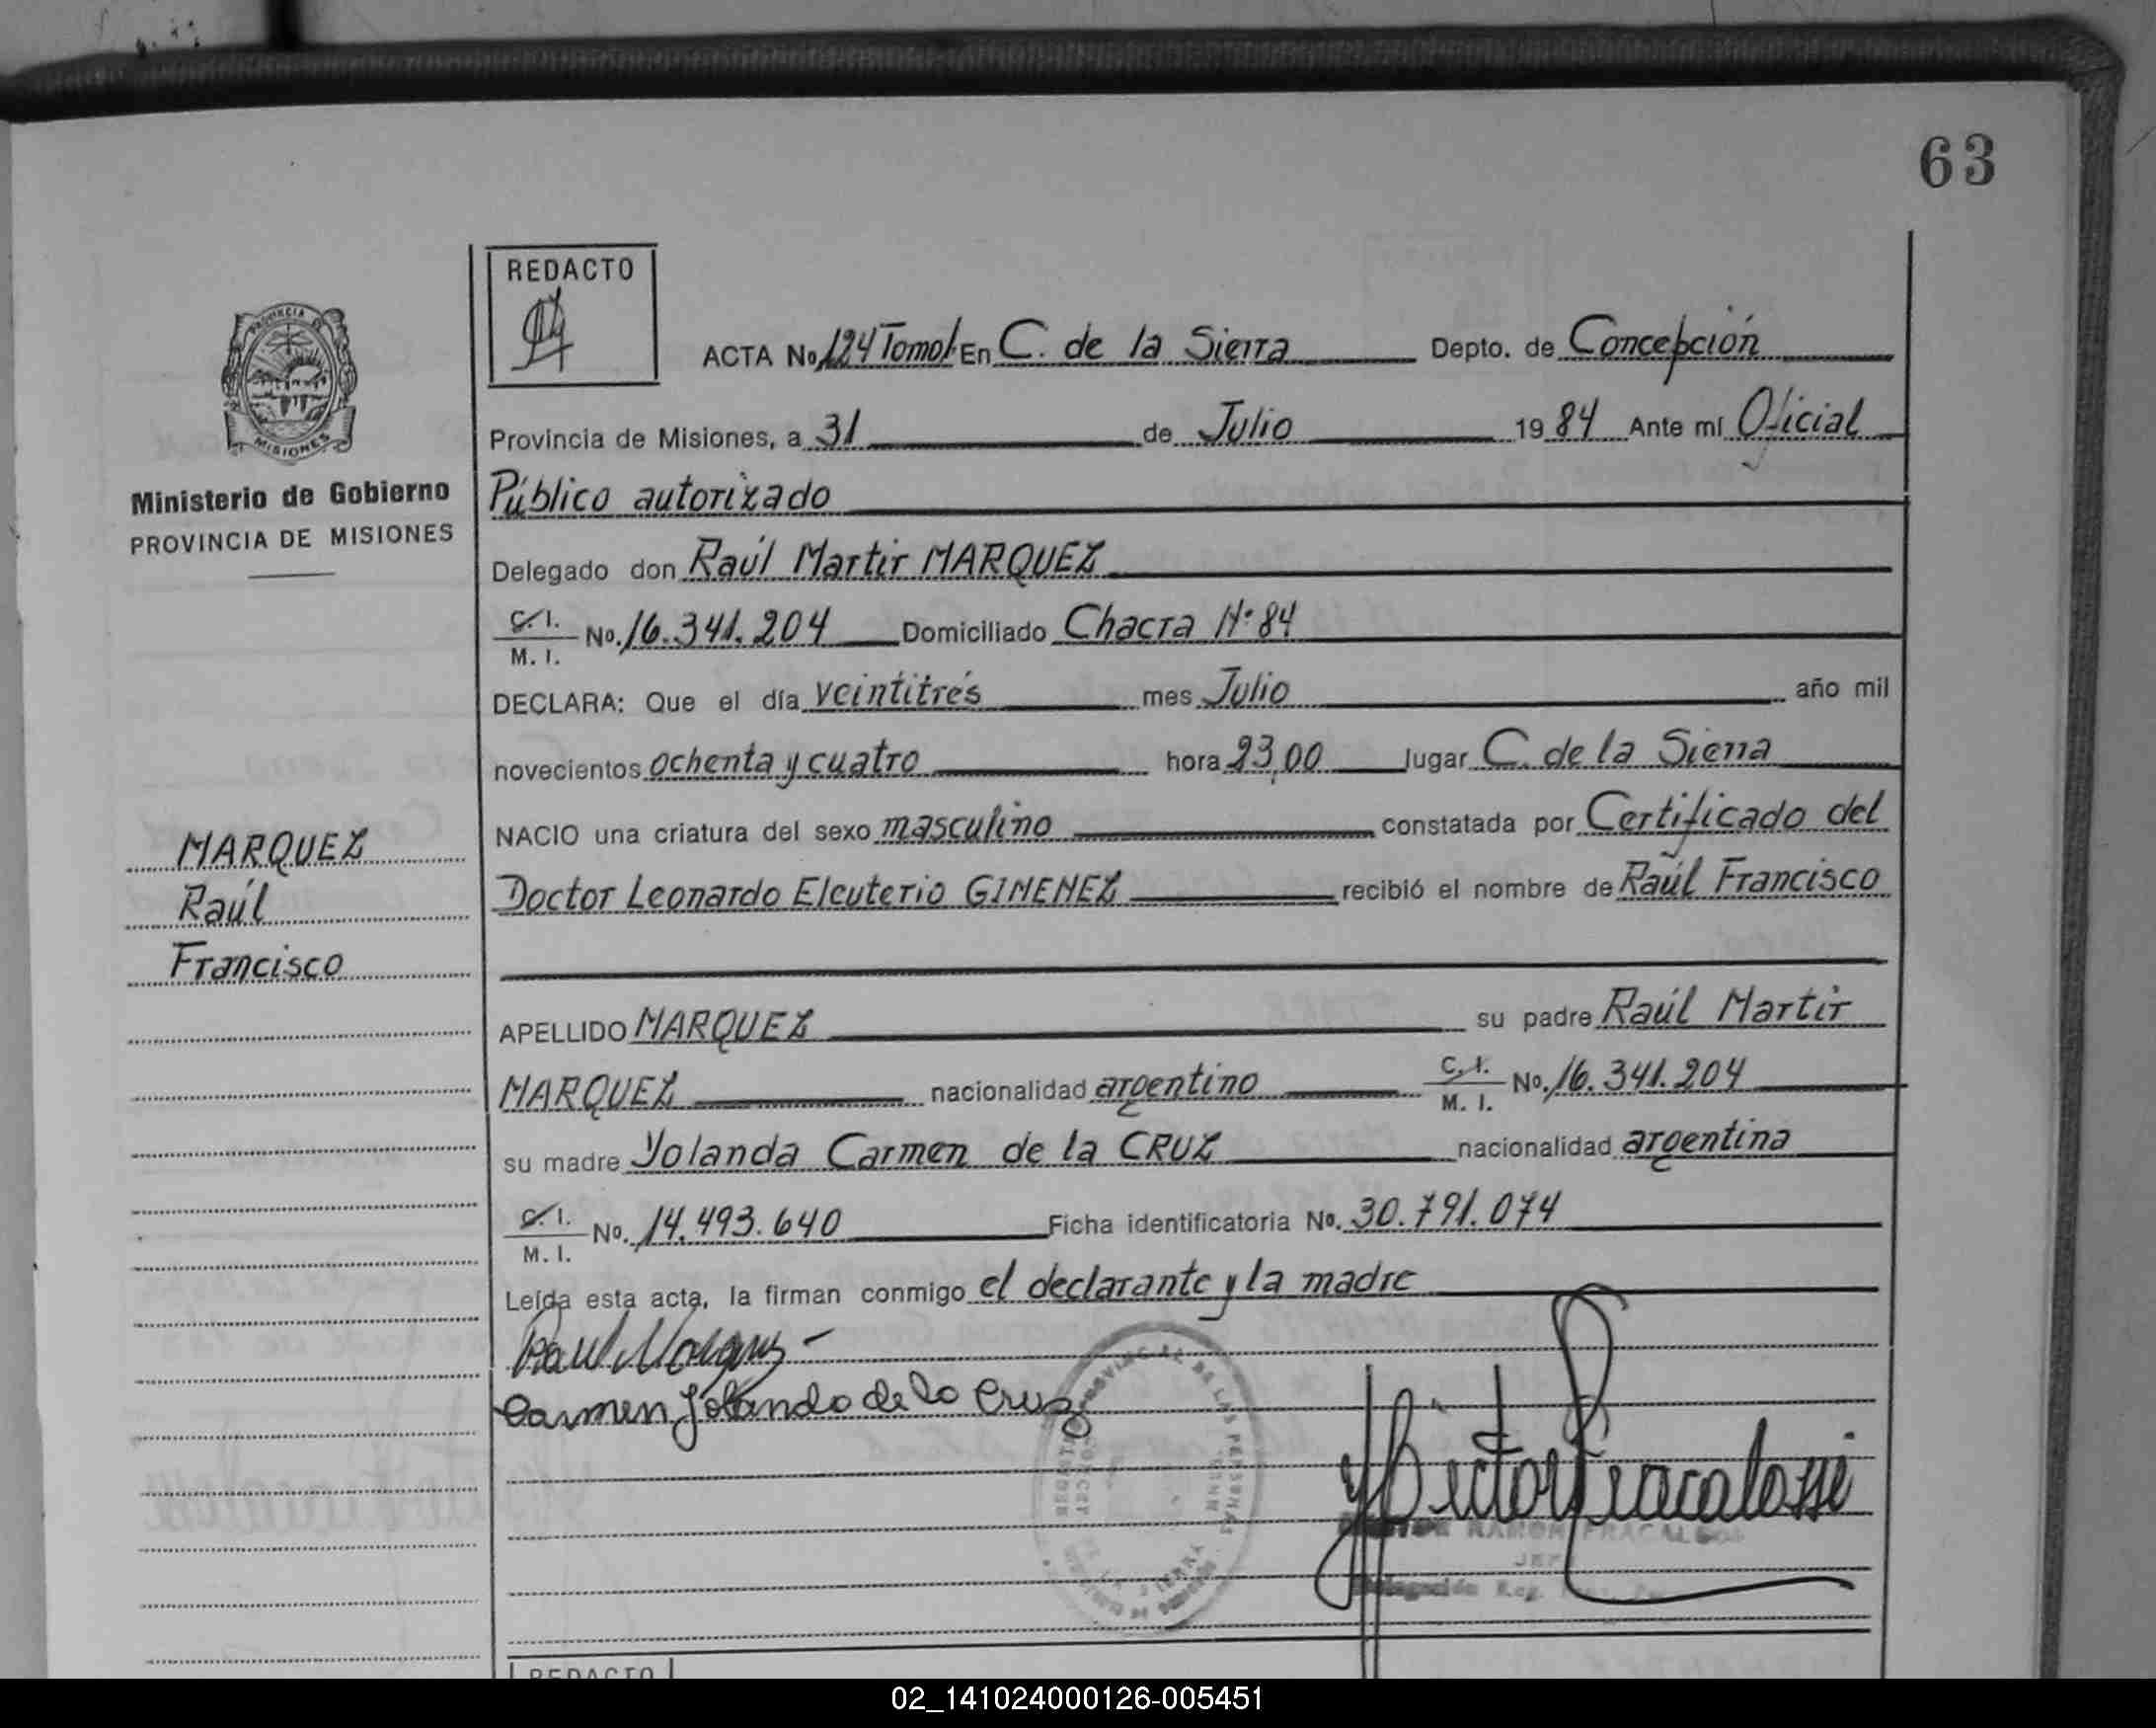 63
REDACTO
ACTA No. 124 Tomo I En C. de la Sierra Depto. de Concepción
Provincia de Misiones, a 31 de Julio 1984 Ante mí Oficial
Público autorizado
Delegado don Raúl Martir MARQUEZ
C. I. M. I. No. 16.341.204 Domiciliado Chacra Nº 84
DECLARA: Que el día veintitrés mes Julio año mil
novecientos ochenta y cuatro hora 23,00 lugar C. de la Sierra
NACIO una criatura del sexo masculino constatada por Certificado del
Doctor Leonardo Eleuterio GIMENEZ recibió el nombre de Raúl Francisco
APELLIDO MARQUEZ su padre Raúl Martir
MARQUEZ nacionalidad argentino C. I. M. I. No. 16.341.204
su madre Yolanda Carmen de la CRUZ nacionalidad argentina
C. I. M. I. No. 14.493.640 Ficha identificatoria No. 30.791.074
Leída esta acta, la firman conmigo el declarante y la madre
Raul Marquez
Carmen Yolanda de la Cruz
Hector Fracalossi
RAMON FRACALOSSI
JEFE
Delegación Reg.
PROVINCIA DE
MISIONES
Ministerio de Gobierno
PROVINCIA DE MISIONES
MARQUEZ
Raúl
Francisco
REDACTO
02_141024000126-005451